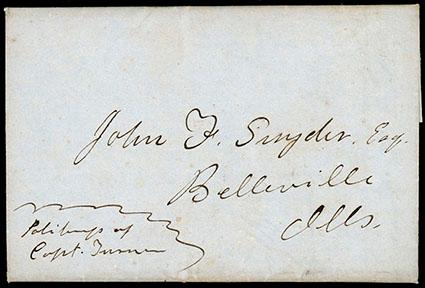 John F. Snyder. Esq.
Belleville
Ills.
Politeness of
Capt. Turner